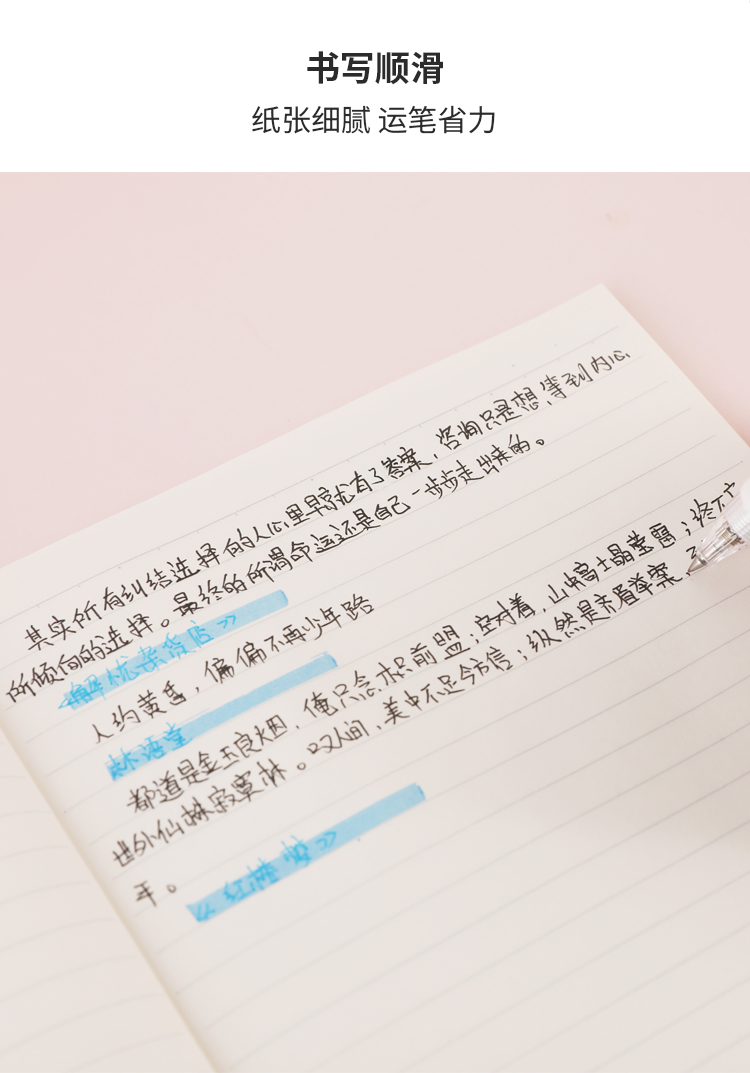 书写顺滑
纸张细腻 运笔省力
其实所有纠结选择的人心里早就有了答案，咨询只是想等到内心
所倾向的选择。最终的所谓命运还是自己一步步走出来的。
《解忧杂货店》
人约黄昏，偏偏不再少年路
林语堂
都道是金玉良姻，俺只念木石前盟；空对着，山中高士晶莹雪；终不
世外仙姝寂寞林。叹人间，美中不足今方信；纵然是齐眉举案，
平。
《红楼梦》